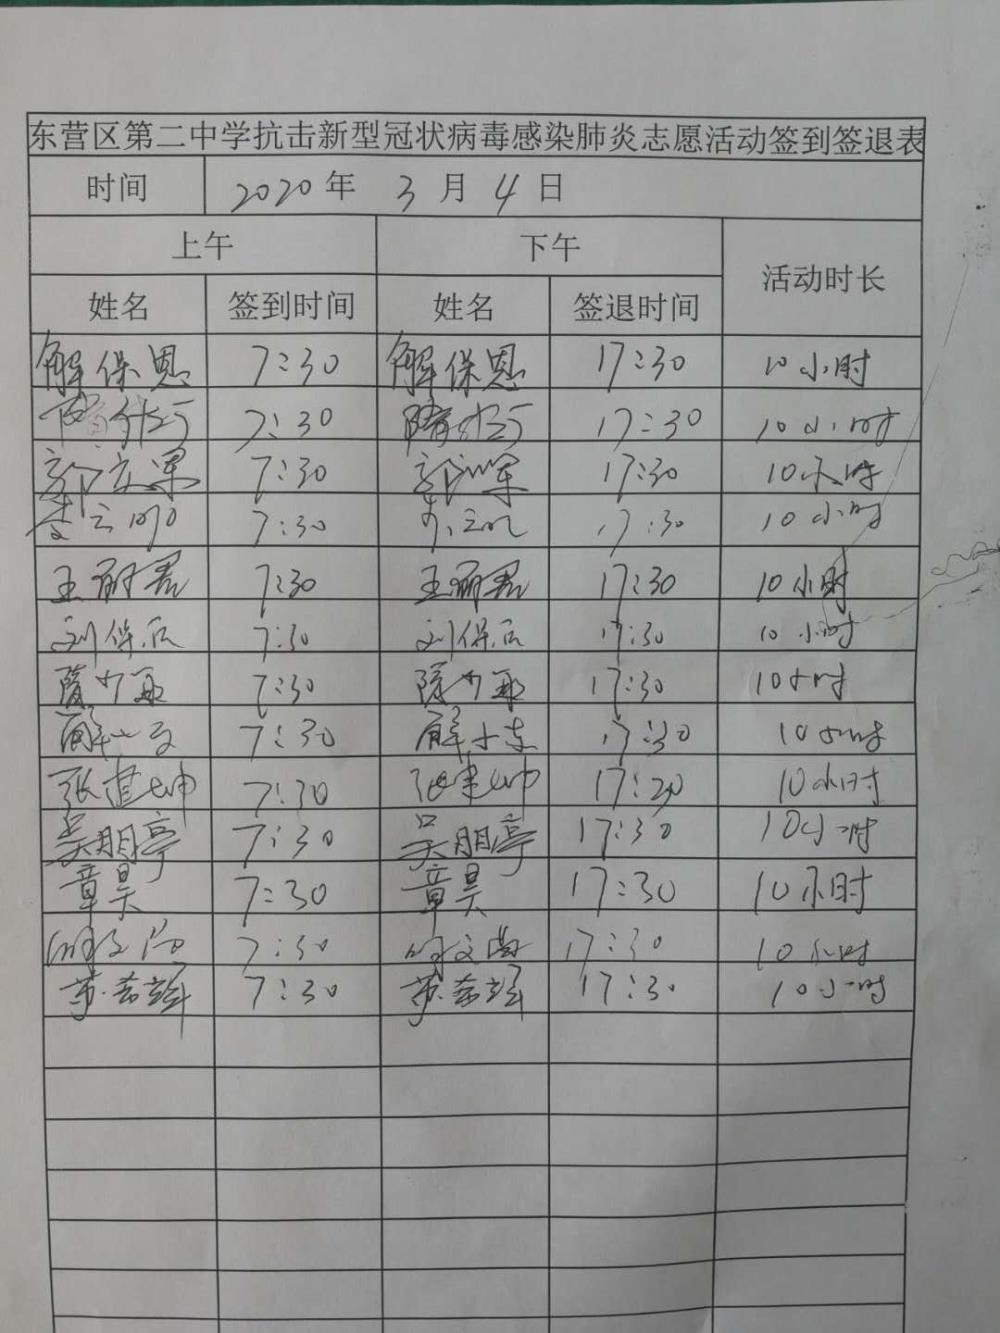 东营区第二中学抗击新型冠状病毒感染肺炎志愿活动签到签退表
时间 2020年 3月 4日
上午 下午 活动时长
姓名 签到时间 姓名 签退时间
解保恩 7:30 解保恩 17:30 10小时
7:30 17:30 10小时
7:30 17:30 10小时
7:30 17:30 10小时
王丽君 7:30 王丽君 17:30 10小时
刘保后 7:30 刘保后 17:30 10小时
7:30 17:30 10小时
7:30 17:30 10小时
张建坤 7:30 张建坤 17:20 10小时
吴朋亭 7:30 吴朋亭 17:30 10小时
章昊 7:30 章昊 17:30 10小时
7:30 17:30 10小时
7:30 17:30 10小时